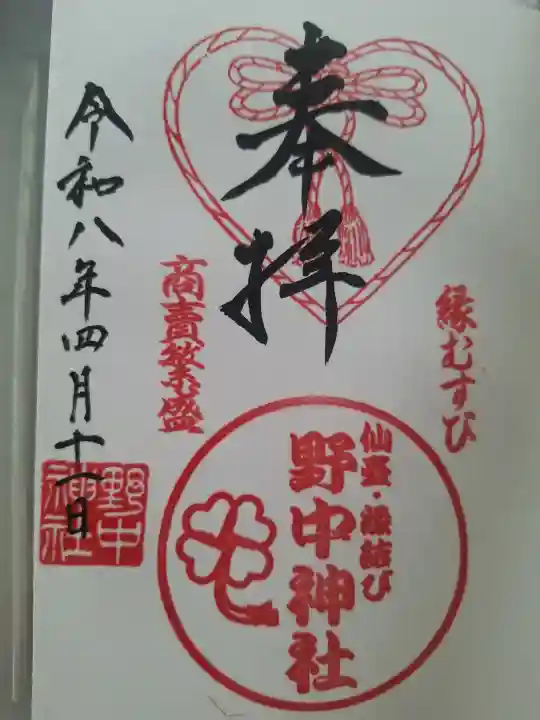 奉拝
縁むすび
商賣繁盛
仙臺・縁結び
野中神社
令和八年四月十一日
野中神社